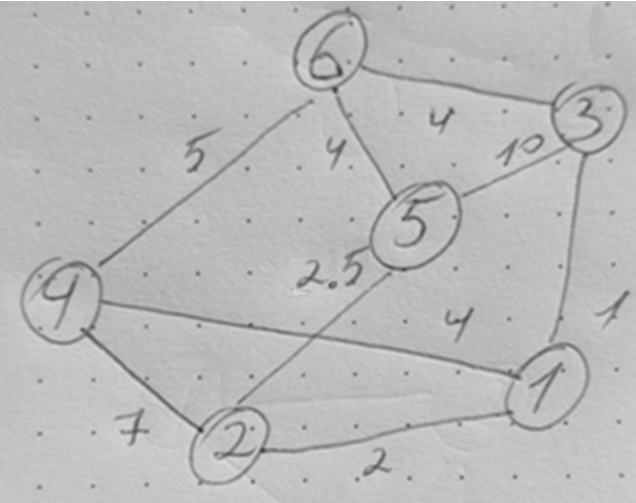 6
4
3
5
4
10
5
2.5
4
4
1
1
7
2
2